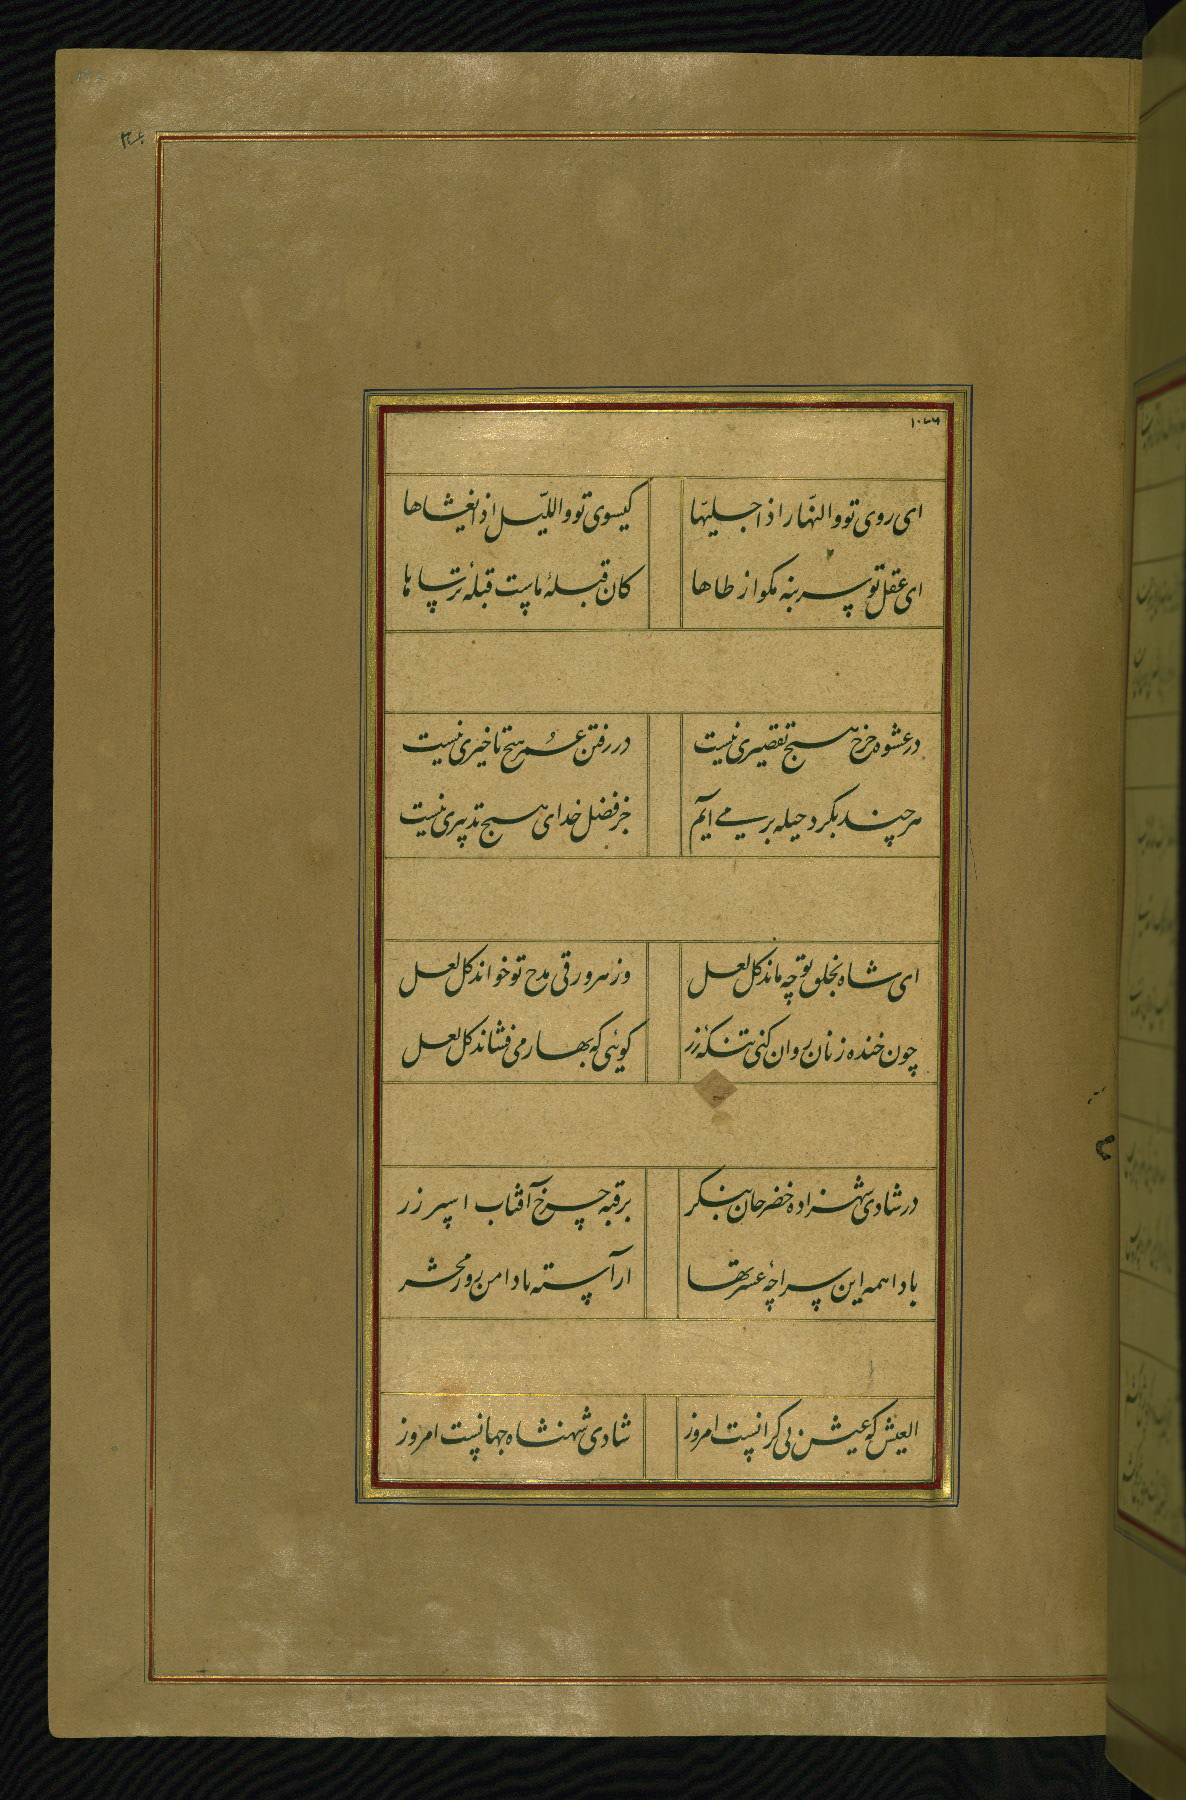 ای روی تو والنّهار اذا جلیّها
کیسوی تو واللّیل اذا یغشاها
ای عقل تو سر بنه مکو از طاها
کان قبلهٔ ماست قبلهٔ ترساها
در عشوه چرخ هیچ تقصیری نیست
در رفتن عمر هیچ تاخیری نیست
هرچند بکرد حیله بر می آیم
جز فضل خدای هیچ تدبیری نیست
ای شاه بخلق تو چه ماند کل لعل
وز هر ورقی مدح تو خواند کل لعل
چون خنده زنان روان کنی تنکهٔ زر
کوئی که بهار می فشاند کل لعل
در شادی شهزاده خضر خان بنکر
بر قبه چرخ آفتاب اسپر زر
بادا همه این سراچهٔ عشرتها
آراسته تا دامن روز محشر
العیش که عیش بی کرانست امروز
شادی شهنشاه جهانست امروز